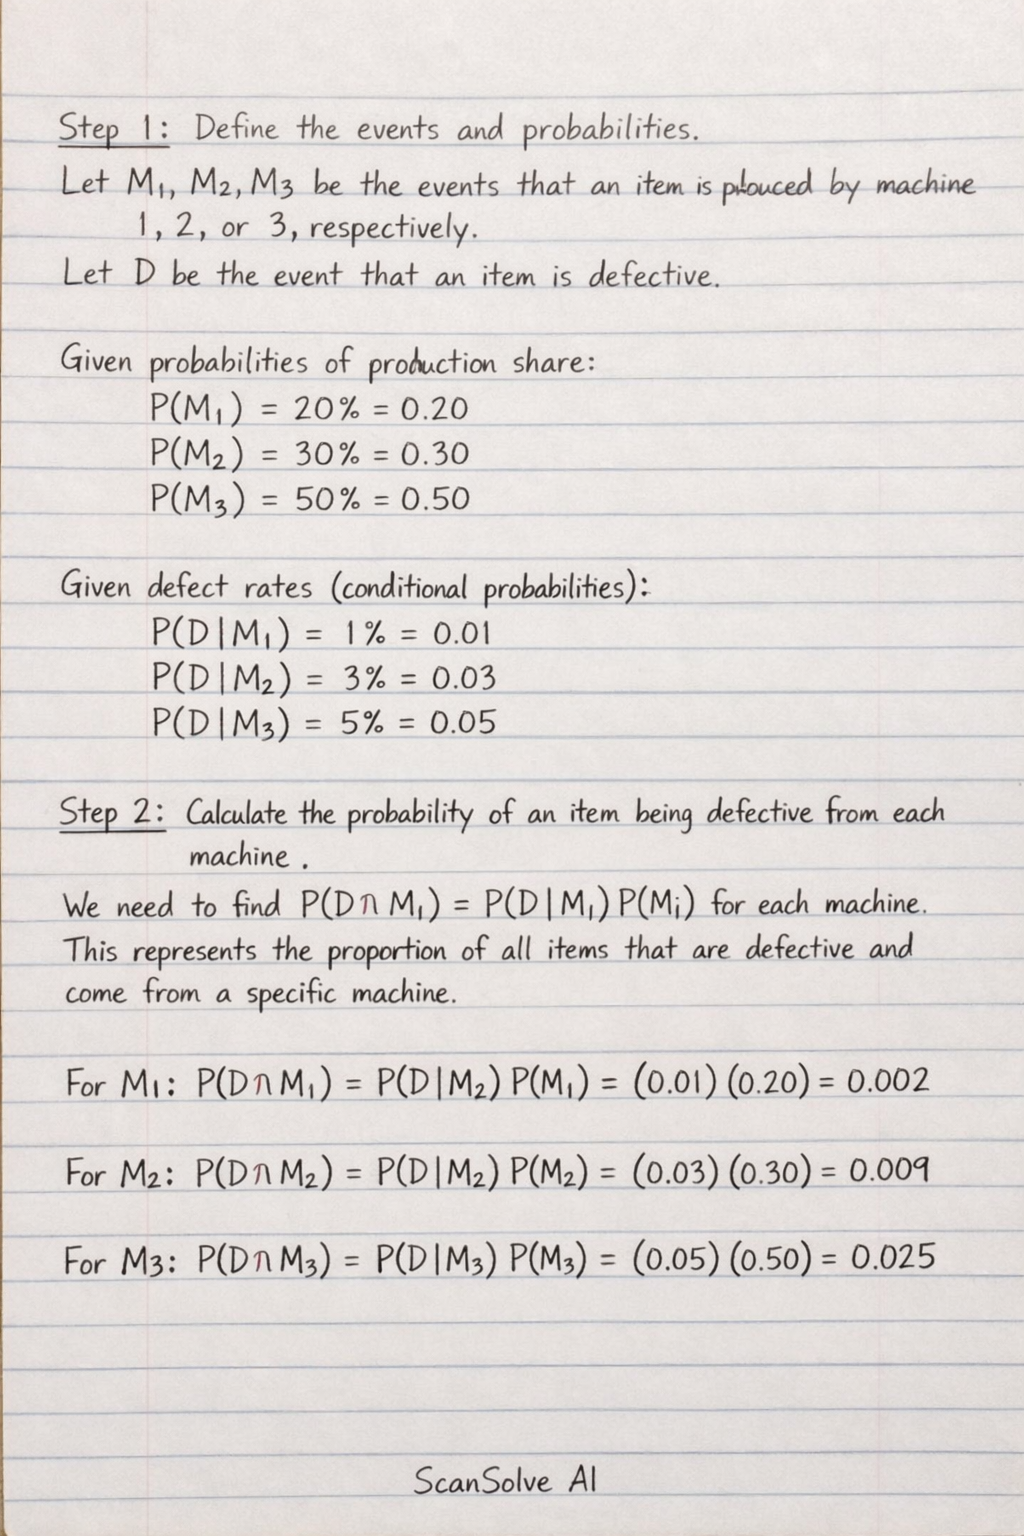 Step 1: Define the events and probabilities.
Let M₁, M₂, M₃ be the events that an item is by machine
1, 2, or 3, respectively.
Let D be the event that an item is defective.
Given probabilities of production share:
P(M₁) = 20% = 0.20
P(M₂) = 30% = 0.30
P(M₃) = 50% = 0.50
Given defect rates (conditional probabilities):
P(D|M₁) = 1% = 0.01
P(D|M₂) = 3% = 0.03
P(D|M₃) = 5% = 0.05
Step 2: Calculate the probability of an item being defective from each
machine.
We need to find P(D∩M₁) = P(D|M₁) P(Mᵢ) for each machine.
This represents the proportion of all items that are defective and
come from a specific machine.
For M₁: P(D∩M₁) = P(D|M₂) P(M₁) = (0.01)(0.20) = 0.002
For M₂: P(D∩M₂) = P(D|M₂) P(M₂) = (0.03)(0.30) = 0.009
For M₃: P(D∩M₃) = P(D|M₃) P(M₃) = (0.05)(0.50) = 0.025
ScanSolve AI